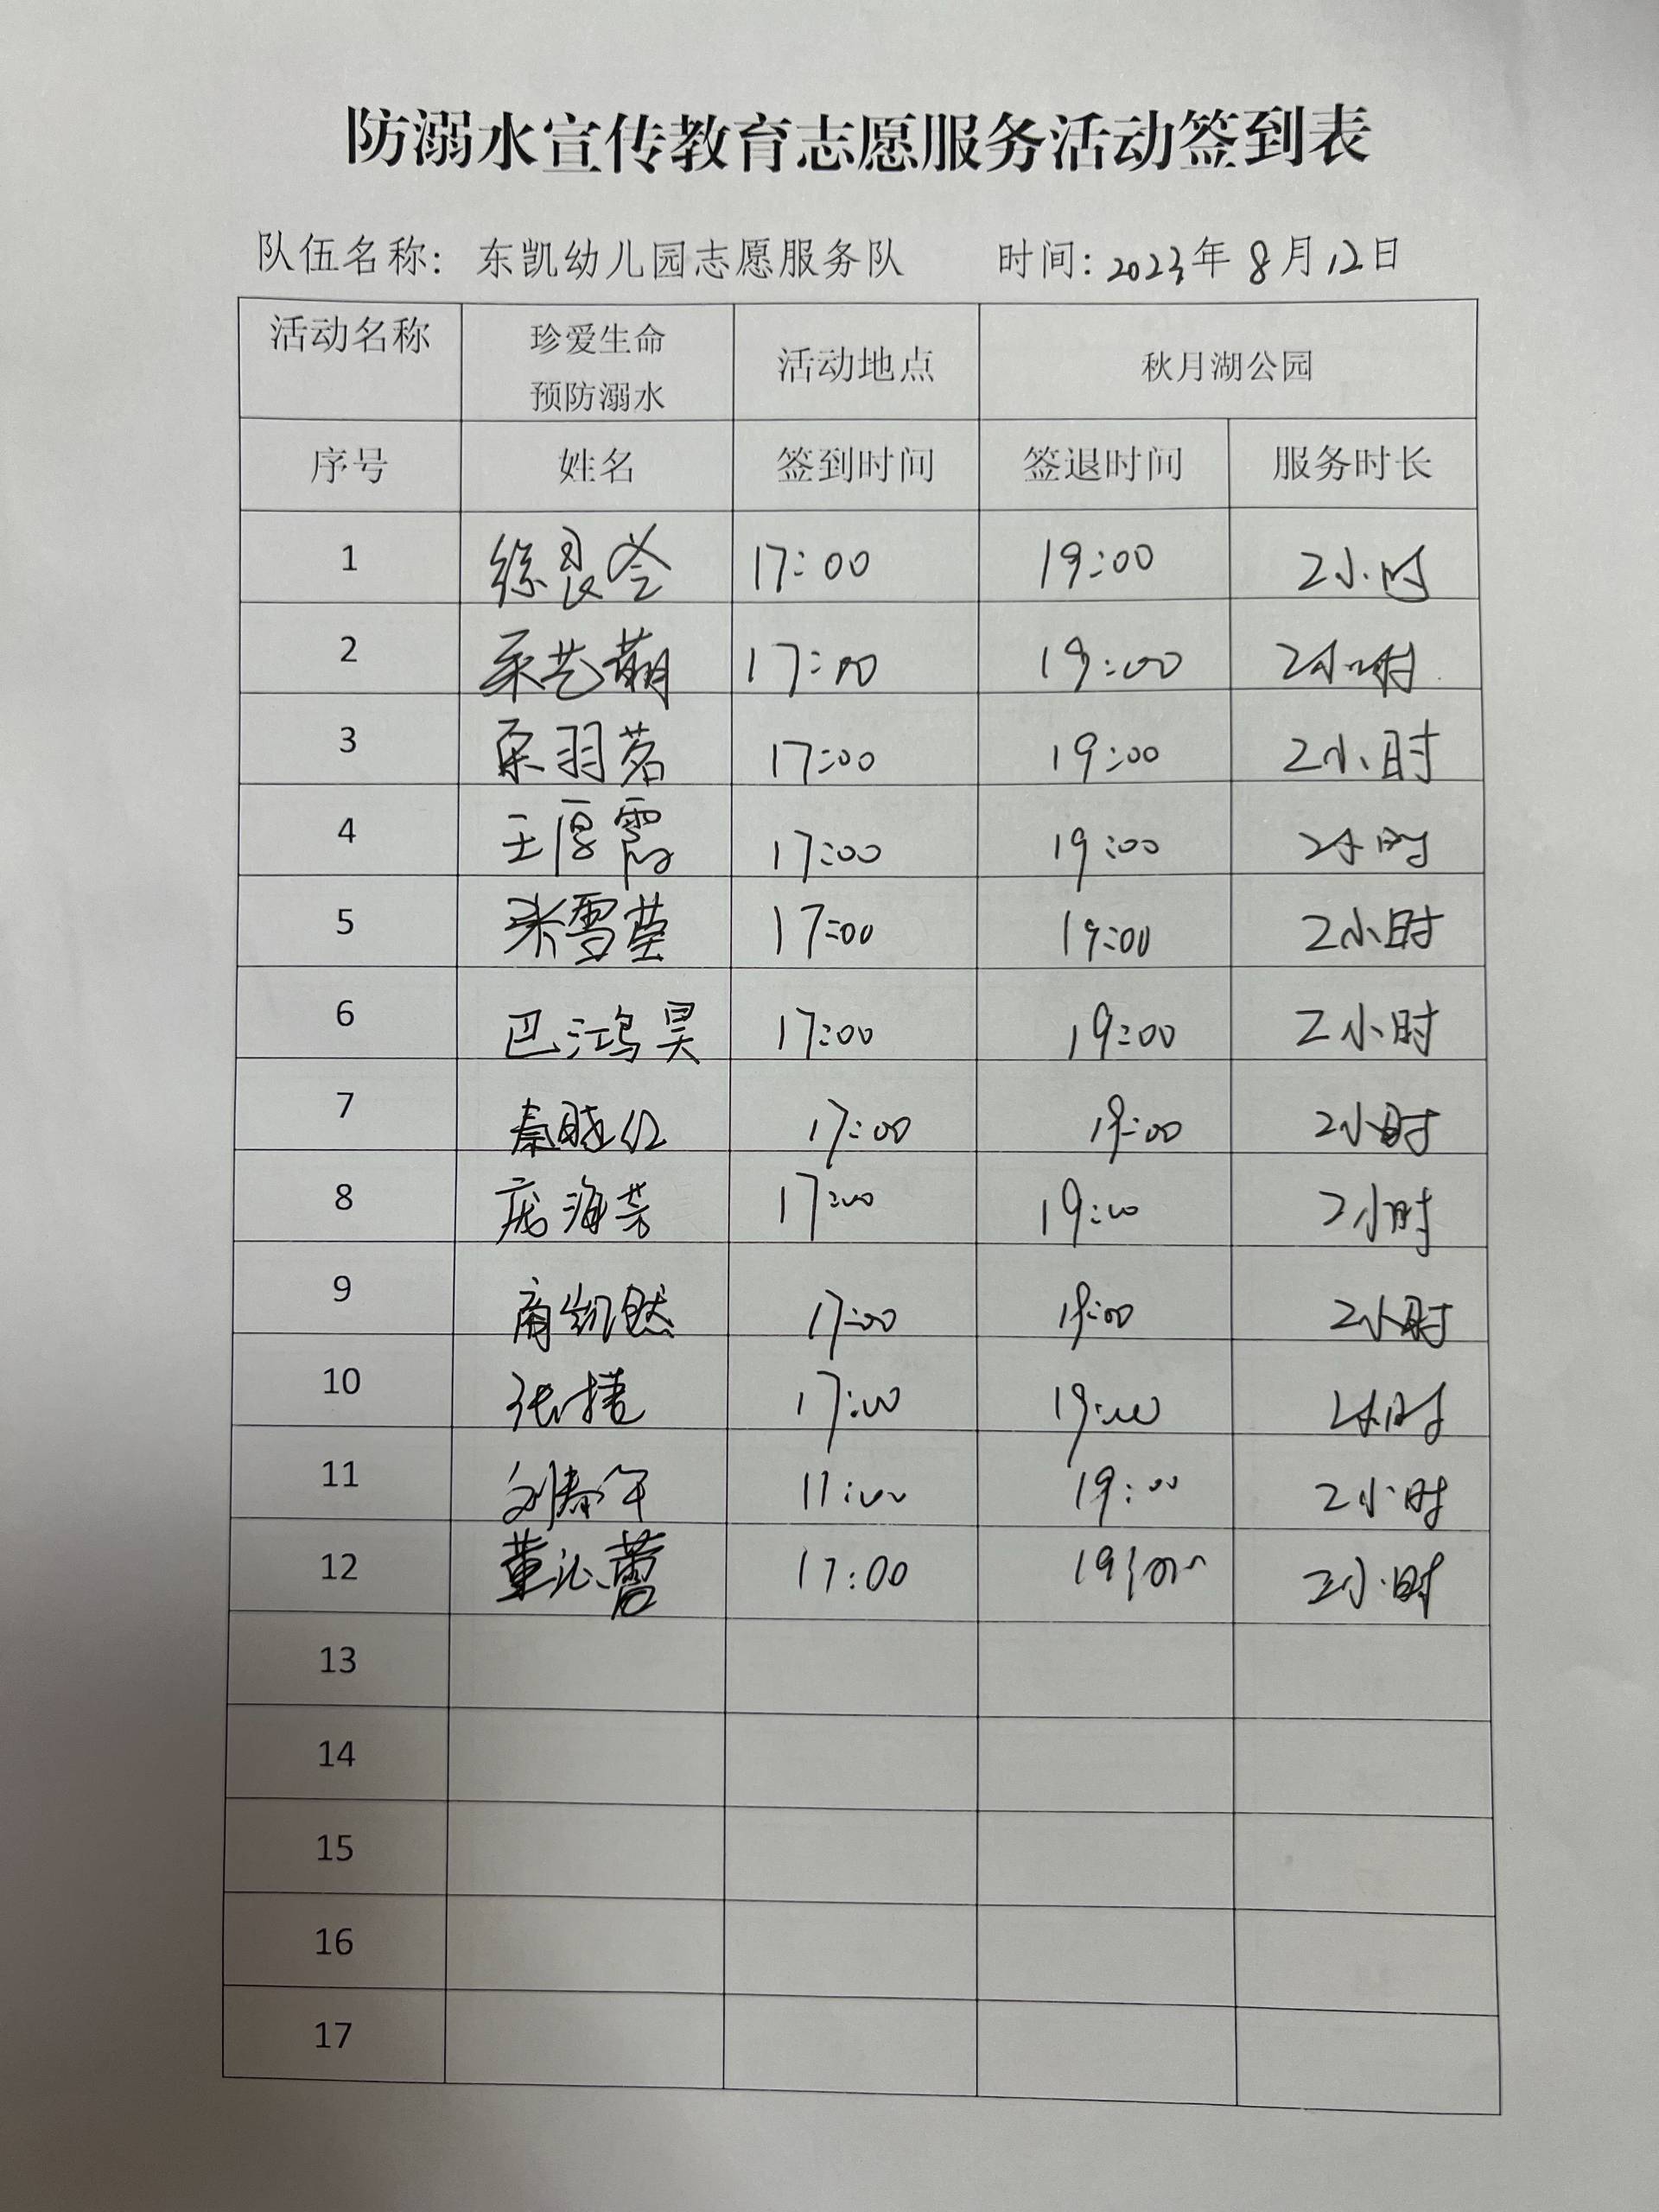 防溺水宣传教育志愿服务活动签到表
队伍名称：东凯幼儿园志愿服务队 时间：2023年8月12日
活动名称 珍爱生命 活动地点 秋月湖公园
预防溺水
序号 姓名 签到时间 签退时间 服务时长
1 徐良苓 17:00 19:00 2小时
2 艺萌 17:00 19:00 2小时
3 羽茗 17:00 19:00 2小时
4 王厚霞 17:00 19:00 2小时
5 张雪莹 17:00 19:00 2小时
6 巴鸿昊 17:00 19:00 2小时
7 秦晓红 17:00 19:00 2小时
8 庞海芳 17:00 19:00 2小时
9 商凯然 17:00 19:00 2小时
10 张捷 17:00 19:00 2小时
11 刘春午 17:00 19:00 2小时
12 董沁蕾 17:00 19:00 2小时
13
14
15
16
17